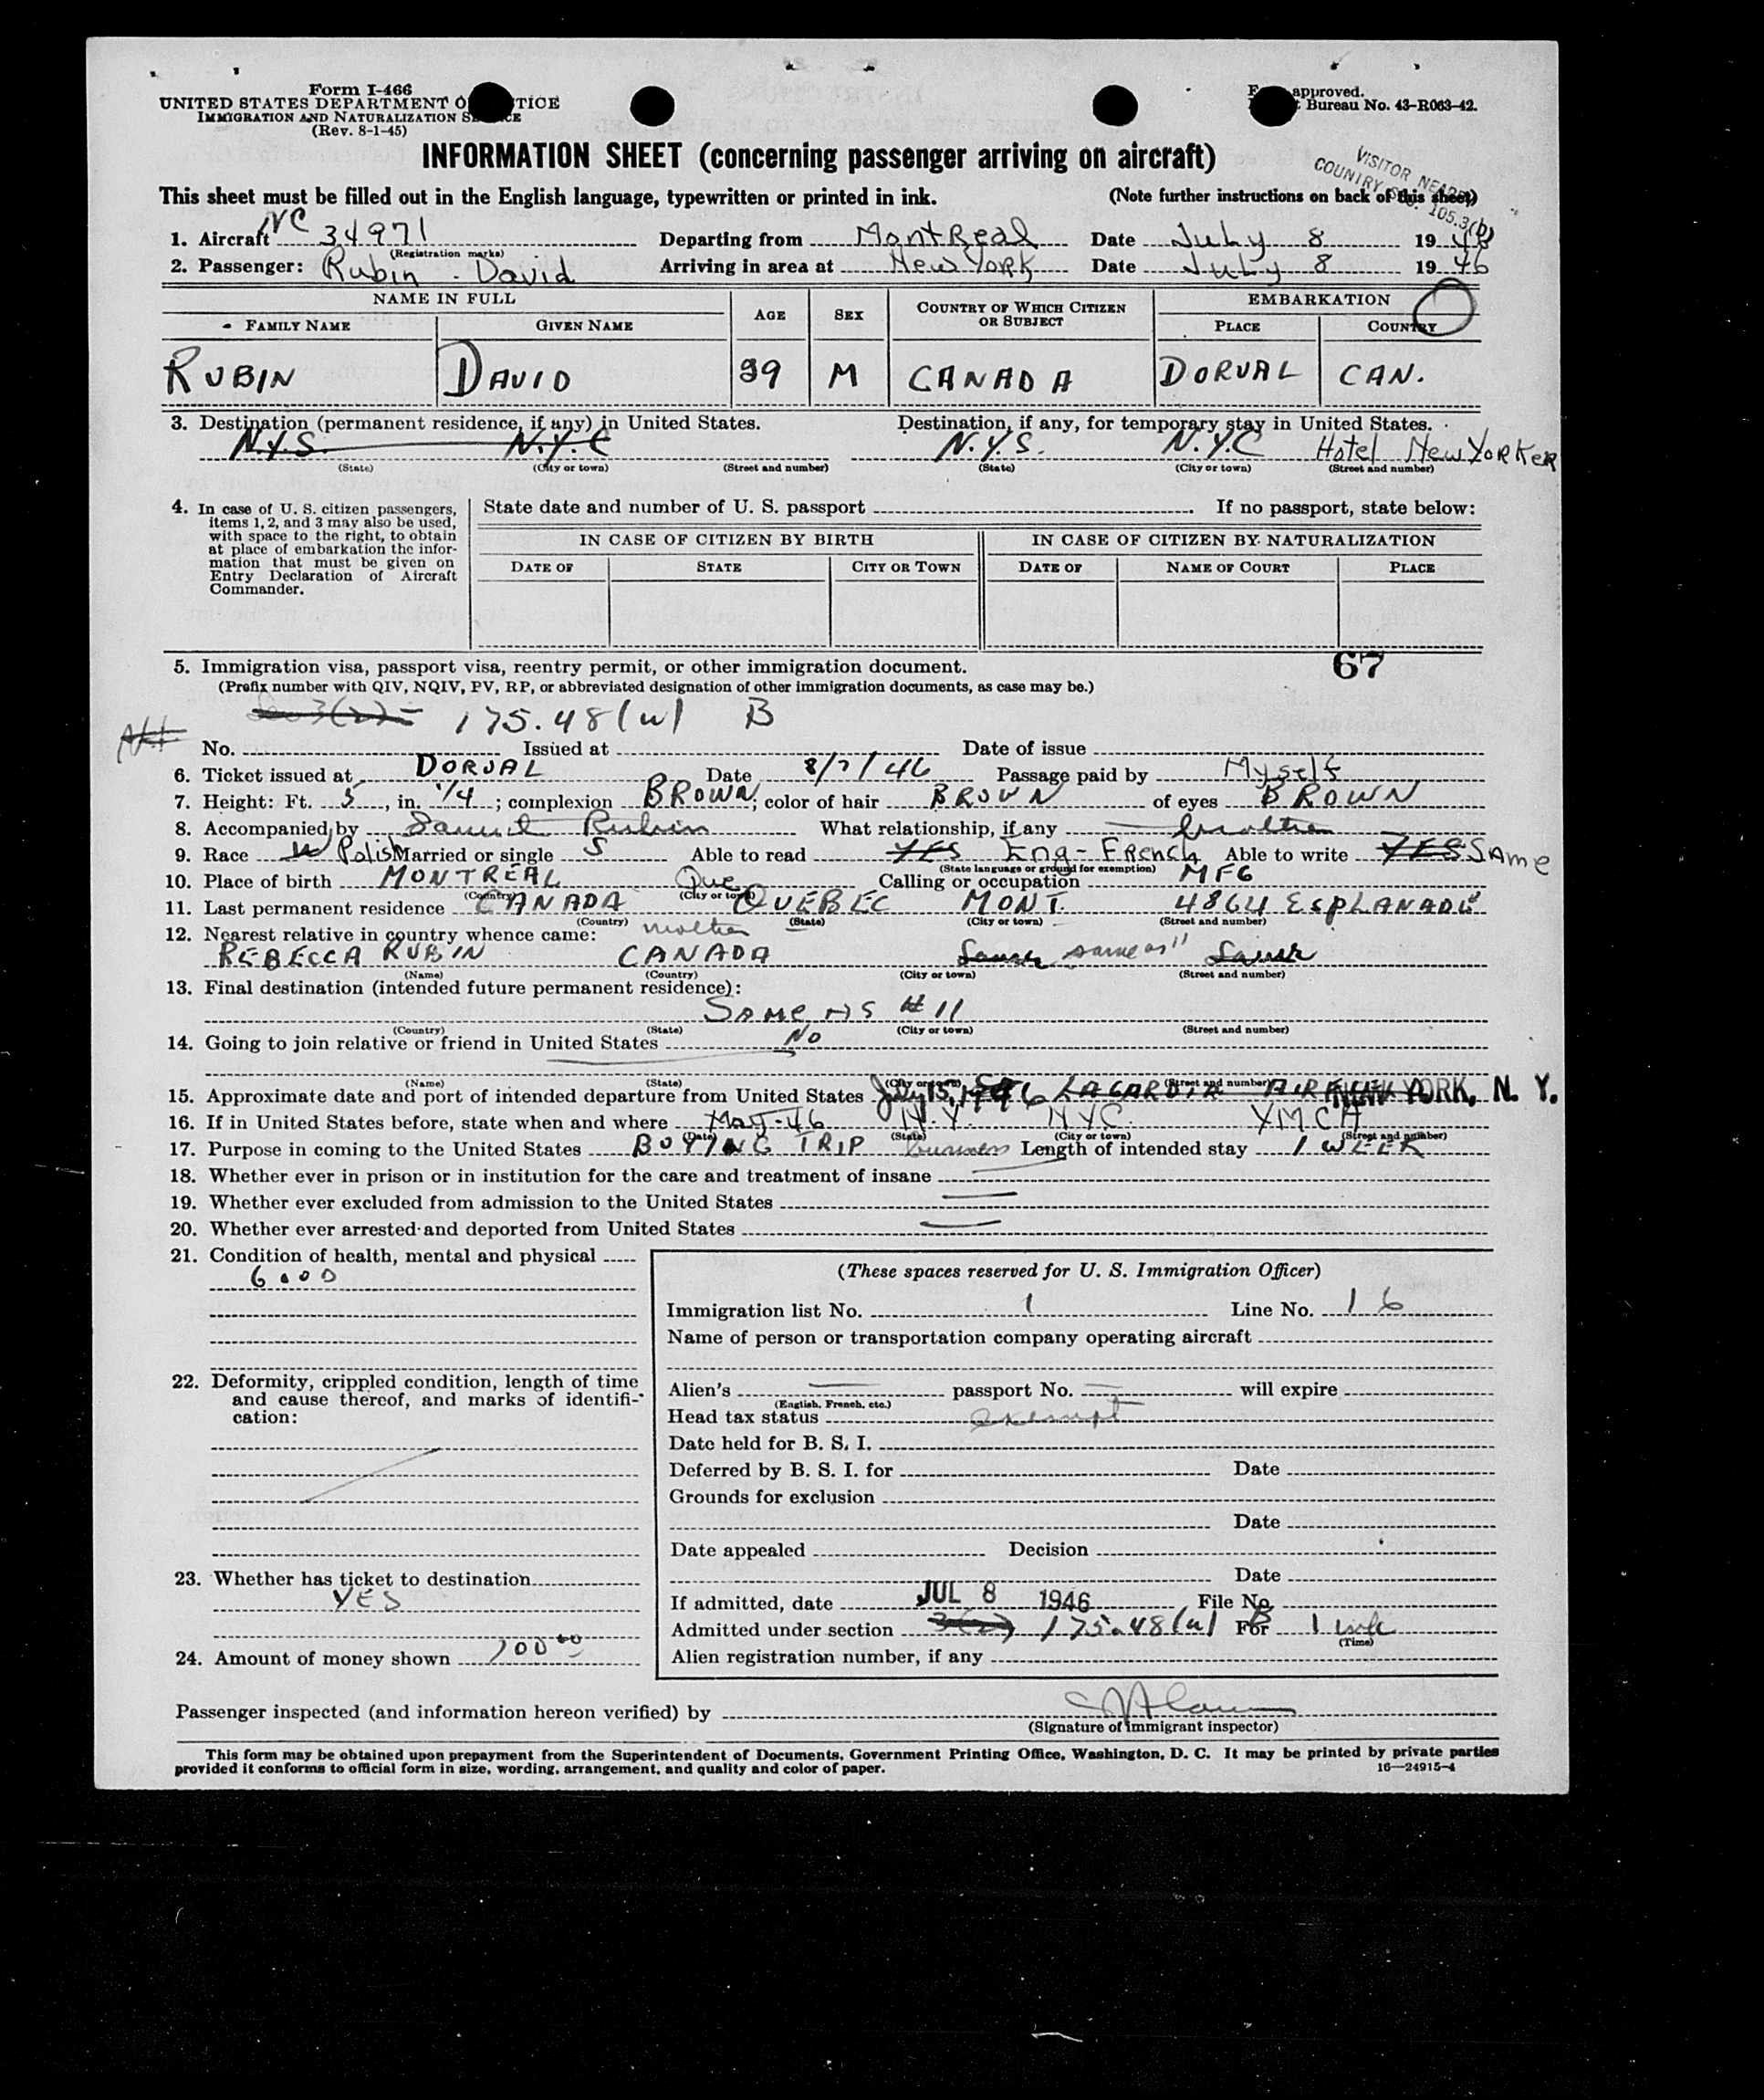 Form I-466
UNITED STATES DEPARTMENT O TICE
IMMIGRATION AND NATURALIZATION S CE
(Rev. 8-1-45)
approved.
Bureau No. 43-R063-42.
INFORMATION SHEET (concerning passenger arriving on aircraft)
VISITOR
COUNTRY 105.3(b)
This sheet must be filled out in the English language, typewritten or printed in ink. (Note further instructions on back of this sheet)
1. Aircraft NC 34971 Departing from Montreal Date July 8 1946
(Registration marks)
2. Passenger: Rubin David Arriving in area at New York Date July 8 1946
NAME IN FULL AGE SEX COUNTRY OF WHICH CITIZEN OR SUBJECT EMBARKATION
FAMILY NAME GIVEN NAME PLACE COUNTRY
RUBIN DAVID 39 M CANADA DORVAL CAN.
3. Destination (permanent residence, if any) in United States. Destination, if any, for temporary stay in United States.
N.Y.S. N.Y.C N.Y.S. N.Y.C Hotel New Yorker
(State) (City or town) (Street and number) (State) (City or town) (Street and number)
4. In case of U. S. citizen passengers, items 1, 2, and 3 may also be used, with space to the right, to obtain at place of embarkation the information that must be given on Entry Declaration of Aircraft Commander.
State date and number of U. S. passport If no passport, state below:
IN CASE OF CITIZEN BY BIRTH IN CASE OF CITIZEN BY NATURALIZATION
DATE OF STATE CITY OR TOWN DATE OF NAME OF COURT PLACE
67
5. Immigration visa, passport visa, reentry permit, or other immigration document.
(Prefix number with QIV, NQIV, PV, RP, or abbreviated designation of other immigration documents, as case may be.)
3(2) 175.48(w) B
No. Issued at Date of issue
6. Ticket issued at DORVAL Date 8/7/46 Passage paid by Myself
7. Height: Ft. 5, in. 1/4; complexion BROWN; color of hair BROWN of eyes BROWN
8. Accompanied by Samuel Rubin What relationship, if any brother
9. Race W Polish Married or single S Able to read YES Eng - French Able to write YES Same
(State language or ground for exemption)
10. Place of birth MONTREAL Que Calling or occupation MFG
(Country) (City or town)
11. Last permanent residence CANADA QUEBEC MONT. 4864 ESPLANADE
(Country) (State) (City or town) (Street and number)
12. Nearest relative in country whence came: mother
REBECCA RUBIN CANADA Same same as 11 Same
(Name) (Country) (City or town) (Street and number)
13. Final destination (intended future permanent residence):
Same as #11
(Country) (State) (City or town) (Street and number)
14. Going to join relative or friend in United States No
(Name) (State) (City or town) (Street and number)
15. Approximate date and port of intended departure from United States July 15, 1946 LAGARDIA AIR NEW YORK, N. Y.
16. If in United States before, state when and where May-46 N.Y. NYC. YMCA
(Date) (State) (City or town) (Street and number)
17. Purpose in coming to the United States BUYING TRIP business Length of intended stay 1 WEEK
18. Whether ever in prison or in institution for the care and treatment of insane
19. Whether ever excluded from admission to the United States
20. Whether ever arrested and deported from United States
21. Condition of health, mental and physical
GOOD
22. Deformity, crippled condition, length of time and cause thereof, and marks of identification:
23. Whether has ticket to destination
YES
24. Amount of money shown 100 00
(These spaces reserved for U. S. Immigration Officer)
Immigration list No. 1 Line No. 16
Name of person or transportation company operating aircraft
Alien's passport No. will expire
(English, French, etc.)
Head tax status exempt
Date held for B. S. I.
Deferred by B. S. I. for Date
Grounds for exclusion
Date
Date appealed Decision
Date
If admitted, date JUL 8 1946 File No.
Admitted under section 3(2) 175.48(w) B For 1 wk
(Time)
Alien registration number, if any
Passenger inspected (and information hereon verified) by
(Signature of immigrant inspector)
This form may be obtained upon prepayment from the Superintendent of Documents, Government Printing Office, Washington, D. C. It may be printed by private parties
provided it conforms to official form in size, wording, arrangement, and quality and color of paper. 16—24915-4